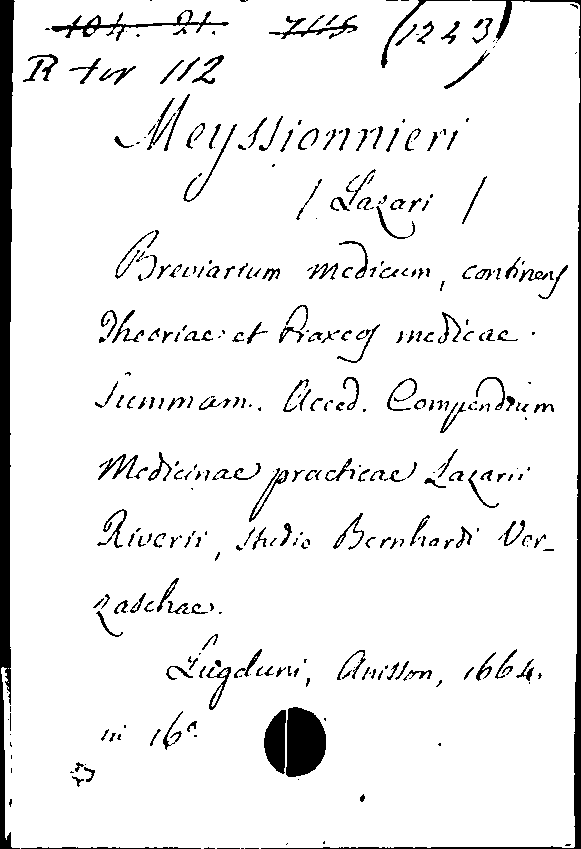 104. 21. 7115 (1223)
R tor 112
Meyssionnieri
/ Lazari /
Breviarium medicum, continens
Theoriae et Praxeos medicae
Summam. Acced. Compendium
Medicinae practicae Lazarii
Riverii, studio Bernhardi Ver-
zaschae.
Lugduni, Anisson, 1664.
in 16°